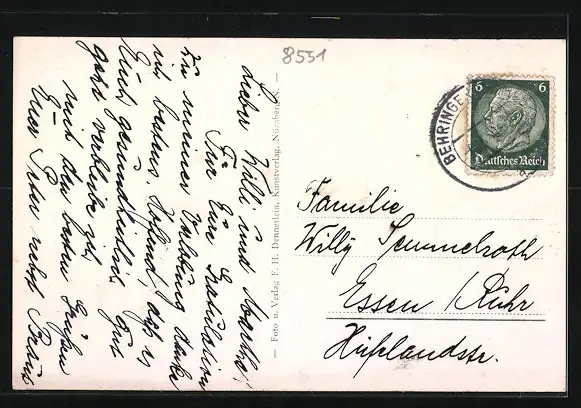 8551
Lieber Willi und Martha!
Für Eure Gratulation
zu meiner Verlobung danke
ich bestens. Hoffend, daß es
Euch gesundheitlich gut
geht verbleibe ich
mit den besten Grüßen
Euer Peter nebst Braut
— Foto u. Verlag F. H. Dennerlein, Kunstverlag, Nürnberg-S. —
BEHRINGE
6 6
Deutsches Reich
Familie
Willy Semmelroth
Essen /Ruhr
Hufelandstr.